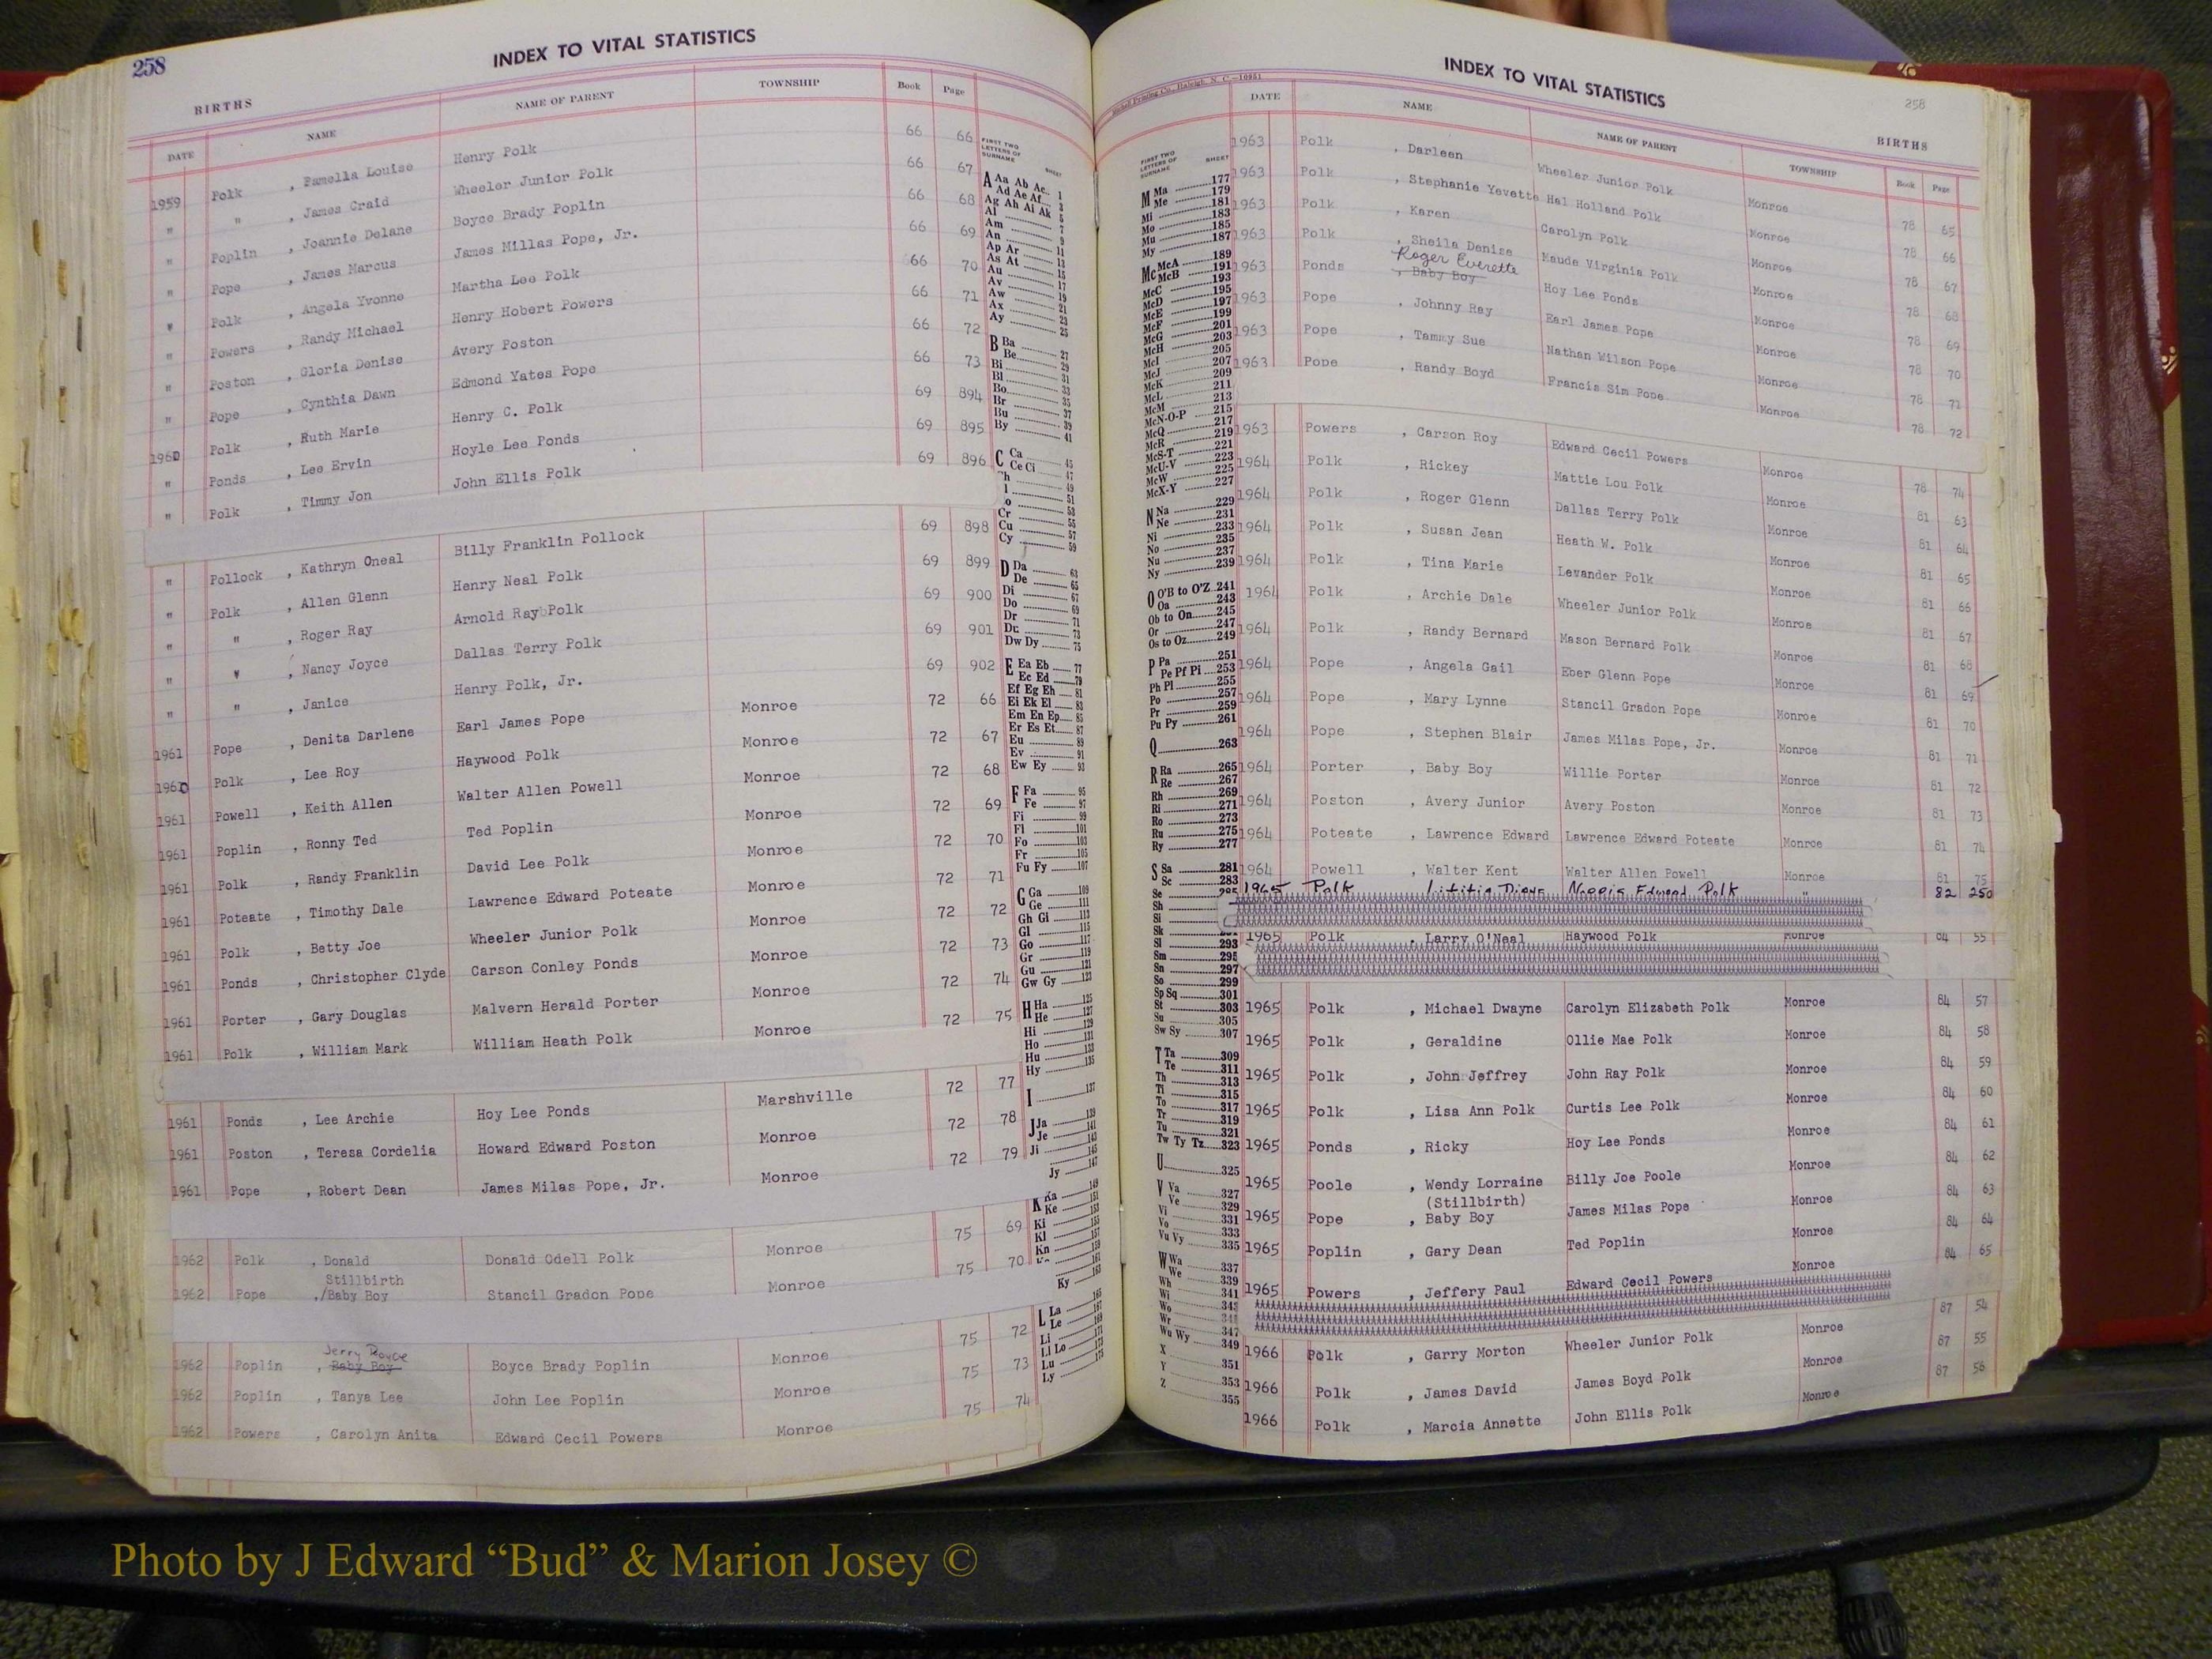 258
INDEX TO VITAL STATISTICS
BIRTHS
DATE NAME NAME OF PARENT TOWNSHIP Book Page
1959 Polk , Pamella Louise Henry Polk 66 66
" " , James Craid Wheeler Junior Polk 66 67
" Poplin , Joannie Delane Boyce Brady Poplin 66 68
" Pope , James Marcus James Millas Pope, Jr. 66 69
" Polk , Angela Yvonne Martha Lee Polk 66 70
" Powers , Randy Michael Henry Hobert Powers 66 71
" Poston , Gloria Denise Avery Poston 66 72
" Pope , Cynthia Dawn Edmond Yates Pope 66 73
1960 Polk , Ruth Marie Henry C. Polk 69 894
" Ponds , Lee Ervin Hoyle Lee Ponds 69 895
" Polk , Timmy Jon John Ellis Polk 69 896
" Pollock , Kathryn Oneal Billy Franklin Pollock 69 898
" Polk , Allen Glenn Henry Neal Polk 69 899
" " , Roger Ray Arnold Ray Polk 69 900
" " , Nancy Joyce Dallas Terry Polk 69 901
" " , Janice Henry Polk, Jr. 69 902
1961 Pope , Denita Darlene Earl James Pope Monroe 72 66
1960 Polk , Lee Roy Haywood Polk Monroe 72 67
1961 Powell , Keith Allen Walter Allen Powell Monroe 72 68
1961 Poplin , Ronny Ted Ted Poplin Monroe 72 69
1961 Polk , Randy Franklin David Lee Polk Monroe 72 70
1961 Poteate , Timothy Dale Lawrence Edward Poteate Monroe 72 71
1961 Polk , Betty Joe Wheeler Junior Polk Monroe 72 72
1961 Ponds , Christopher Clyde Carson Conley Ponds Monroe 72 73
1961 Porter , Gary Douglas Malvern Herald Porter Monroe 72 74
1961 Polk , William Mark William Heath Polk Monroe 72 75
1961 Ponds , Lee Archie Hoy Lee Ponds Marshville 72 77
1961 Poston , Teresa Cordelia Howard Edward Poston Monroe 72 78
1961 Pope , Robert Dean James Milas Pope, Jr. Monroe 72 79
1962 Polk , Donald Donald Odell Polk Monroe 75 69
Stillbirth
1962 Pope ,/Baby Boy Stancil Gradon Pope Monroe 75 70
Jerry Royce
1962 Poplin , Baby Boy Boyce Brady Poplin Monroe 75 72
1962 Poplin , Tanya Lee John Lee Poplin Monroe 75 73
1962 Powers , Carolyn Anita Edward Cecil Powers Monroe 75 74
FIRST TWO LETTERS OF SURNAME SHEET
A Aa Ab Ac 1
Ad Ae Af 3
Ag Ah Ai Ak 5
Al 7
Am 9
An 11
Ap Ar 13
As At 15
Au 17
Av 19
Aw 21
Ax 23
Ay 25
B Ba 27
Be 29
Bi 31
Bl 33
Bo 35
Br 37
Bu 39
By 41
C Ca 45
Ce Ci 47
49
51
53
Cr 55
Cu 57
Cy 59
D Da 63
De 65
Di 67
Do 69
Dr 71
Du 73
Dw Dy 75
E Ea Eb 77
Ec Ed 79
Ef Eg Eh 81
Ei Ek El 83
Em En Ep 85
Er Es Et 87
Eu 89
Ev 91
Ew Ey 93
F Fa 95
Fe 97
Fi 99
Fl 101
Fo 103
Fr 105
Fu Fy 107
G Ga 109
Ge 111
Gh Gi 113
Gl 115
Go 117
Gr 119
Gu 121
Gw Gy 123
H Ha 125
He 127
Hi 129
Ho 131
Hu 133
Hy 135
I 137
J Ja 139
Je 141
Ji 143
145
Jy 147
K Ka 149
Ke 151
Ki 153
Kl 155
Kn 157
Ky 163
L La 165
Le 167
Li 169
Ll Lo 171
Lu 173
Ly 175
INDEX TO VITAL STATISTICS
258
Printing Co., Raleigh, N. C.—10951
BIRTHS
DATE NAME NAME OF PARENT TOWNSHIP Book Page
1963 Polk , Darleen Wheeler Junior Polk Monroe 78 65
1963 Polk , Stephanie Yevette Hal Holland Polk Monroe 78 66
1963 Polk , Karen Carolyn Polk Monroe 78 67
1963 Polk , Sheila Denise Maude Virginia Polk Monroe 78 68
Roger Everette
1963 Ponds , Baby Boy Hoy Lee Ponds Monroe 78 69
1963 Pope , Johnny Ray Earl James Pope Monroe 78 70
1963 Pope , Tammy Sue Nathan Wilson Pope Monroe 78 71
1963 Pope , Randy Boyd Francis Sim Pope Monroe 78 72
1963 Powers , Carson Roy Edward Cecil Powers Monroe 78 74
1964 Polk , Rickey Mattie Lou Polk Monroe 81 63
1964 Polk , Roger Glenn Dallas Terry Polk Monroe 81 64
1964 Polk , Susan Jean Heath W. Polk Monroe 81 65
1964 Polk , Tina Marie Levander Polk Monroe 81 66
1964 Polk , Archie Dale Wheeler Junior Polk Monroe 81 67
1964 Polk , Randy Bernard Mason Bernard Polk Monroe 81 68
1964 Pope , Angela Gail Eber Glenn Pope Monroe 81 69
1964 Pope , Mary Lynne Stancil Gradon Pope Monroe 81 70
1964 Pope , Stephen Blair James Milas Pope, Jr. Monroe 81 71
1964 Porter , Baby Boy Willie Porter Monroe 81 72
1964 Poston , Avery Junior Avery Poston Monroe 81 73
1964 Poteate , Lawrence Edward Lawrence Edward Poteate Monroe 81 74
1964 Powell , Walter Kent Walter Allen Powell Monroe 81 75
1965 Polk Edward Polk " 82 250
1965 Polk , Larry O'Neal Haywood Polk Monroe 84 55
1965 Polk , Michael Dwayne Carolyn Elizabeth Polk Monroe 84 57
1965 Polk , Geraldine Ollie Mae Polk Monroe 84 58
1965 Polk , John Jeffrey John Ray Polk Monroe 84 59
1965 Polk , Lisa Ann Polk Curtis Lee Polk Monroe 84 60
1965 Ponds , Ricky Hoy Lee Ponds Monroe 84 61
1965 Poole , Wendy Lorraine Billy Joe Poole Monroe 84 62
(Stillbirth)
1965 Pope , Baby Boy James Milas Pope Monroe 84 63
1965 Poplin , Gary Dean Ted Poplin Monroe 84 64
1965 Powers , Jeffery Paul Edward Cecil Powers Monroe 84 65
1966 Polk , Garry Morton Wheeler Junior Polk Monroe 87 54
1966 Polk , James David James Boyd Polk Monroe 87 55
1966 Polk , Marcia Annette John Ellis Polk Monroe 87 56
FIRST TWO LETTERS OF SURNAME SHEET
M Ma 177
Me 179
Mi 181
Mo 183
Mu 185
My 187
Mc McA 189
McB 191
McC 193
McD 195
McE 197
McF 199
McG 201
McH 203
McI 205
McJ 207
McK 209
McL 211
McM 213
McN-O-P 215
McQ 217
McR 219
McS-T 221
McU-V 223
McW 225
McX-Y 227
N Na 229
Ne 231
Ni 233
No 235
Nu 237
Ny 239
O O'B to O'Z 241
Oa 243
Ob to On 245
Or 247
Os to Oz 249
P Pa 251
Pe Pf Pi 253
Ph Pl 255
Po 257
Pr 259
Pu Py 261
Q 263
R Ra 265
Re 267
Rh 269
Ri 271
Ro 273
Ru 275
Ry 277
S Sa 281
Sc 283
Se 285
Sh
Si
Sk
Sl 293
Sm 295
Sn 297
So 299
Sp Sq 301
St 303
Su 305
Sw Sy 307
T Ta 309
Te 311
Th 313
Ti 315
To 317
Tr 319
Tu 321
Tw Ty Tz 323
U 325
V Va 327
Ve 329
Vi 331
Vo 333
Vu Vy 335
W Wa 337
We 339
Wh 341
Wi 343
Wo
Wr 347
Wu Wy 349
X 351
Y 353
Z 355
Photo by J Edward “Bud” & Marion Josey ©